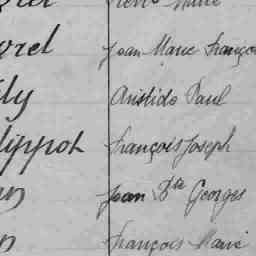 Pierre Marie
orel Jean Marie François
lly Aristide Paul
lippot François Joseph
Jean Bte Georges
François Marie